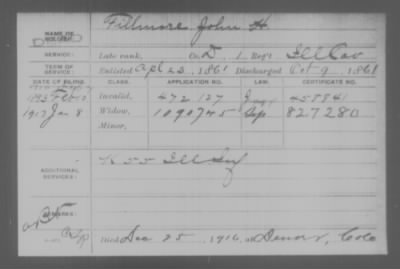 Fillmore John H.
NAME OF SOLDIER:
SERVICE: Late rank, Co. D, 1 Reg't Ill Cav
TERM OF SERVICE: Enlisted Apl 23, 1861 Discharged Oct 9, 1861
DATE OF FILING. CLASS. APPLICATION NO. LAW. CERTIFICATE NO.
Invalid, 472 127 458841
1917 Jan 8 Widow, 1090745 827280
Minor,
ADDITIONAL SERVICES: K 55 Ill Inf
REMARKS:
Died Dec 25, 1916, at Denver, Colo